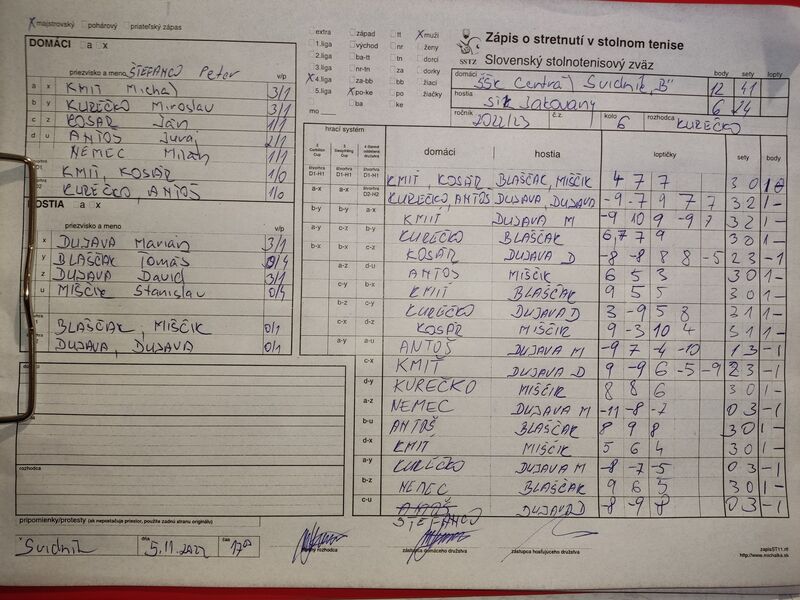 majstrovský pohárový priateľský zápas
DOMÁCI a x
priezvisko a meno v/p
ŠTEFANCO Peter
a x KMIŤ Michal 3/1
b y KUREČKO Miroslav 3/1
c z KOSÁR Ján 1/1
d u ANTOŠ Juraj 2/1
NEMEC Milan 1/1
D1 KMIŤ, KOSÁR 1/0
D2 KUREČKO, ANTOŠ 1/0
HOSTIA a x
priezvisko a meno v/p
x DUJAVA Marián 3/1
y BLAŠČAK Tomáš 0/4
z DUJAVA David 3/1
u MIŠČIK Stanislav 0/4
BLAŠČAK, MIŠČIK 0/1
DUJAVA, DUJAVA 0/1
rozhodca
pripomienky/protesty (ak nepostačuje priestor, použite zadnú stranu originálu)
v Svidník dňa 5.11.2022 čas 1700
hlavný rozhodca
zástupca domáceho družstva
zástupca hosťujúceho družstva
extra západ tt muži
1.liga východ nr ženy
2.liga ba-tt tn dorci
3.liga nr-tn za dorky
4.liga za-bb bb žiaci
5.liga po-ke po žiačky
mo ba ke
Zápis o stretnutí v stolnom tenise
SSTZ Slovenský stolnotenisový zväz
body sety lopty
domáci ŠŠK Centrál Svidník "B" 12 41
hostia STK Jakovany 6 24
ročník 2022/23 č.z. kolo 6 rozhodca KUREČKO
hrací systém
domáci hostia loptičky sety body
D1-H1 D1-H1 D1-H1 KMIŤ, KOSÁR BLAŠČAK, MIŠČIK 4 7 7 3 0 1 0
a-x a-x D2-H2 KUREČKO, ANTOŠ DUJAVA, DUJAVA -9 -7 9 7 7 3 2 1 -
b-y b-y a-x KMIŤ DUJAVA M -9 10 9 -9 7 3 2 1 -
a-y c-z b-y KUREČKO BLAŠČAK 6,7 7 9 3 0 1 -
b-x b-x c-z KOSÁR DUJAVA D -8 -8 8 8 -5 2 3 - 1
a-z d-u ANTOŠ MIŠČIK 6 5 3 3 0 1 -
c-y b-x KMIŤ BLAŠČAK 9 5 5 3 0 1 -
b-z c-y KUREČKO DUJAVA D 3 -9 5 8 3 1 1 -
c-x d-z KOSÁR MIŠČIK 9 -3 10 4 3 1 1 -
a-y a-u ANTOŠ DUJAVA M -9 7 -4 -10 1 3 - 1
c-x KMIŤ DUJAVA D 9 -9 6 -5 -9 2 3 - 1
d-y KUREČKO MIŠČIK 8 8 6 3 0 1 -
a-z NEMEC DUJAVA M -11 -8 -7 0 3 - 1
b-u ANTOŠ BLAŠČAK 8 9 8 3 0 1 -
d-x KMIŤ MIŠČIK 5 6 4 3 0 1 -
a-y KUREČKO DUJAVA M -8 -7 -5 0 3 - 1
b-z NEMEC BLAŠČAK 9 6 5 3 0 1 -
c-u ŠTEFANCO DUJAVA D -8 -9 -8 0 3 - 1
zapisST11.rtf
http://www.michalka.sk